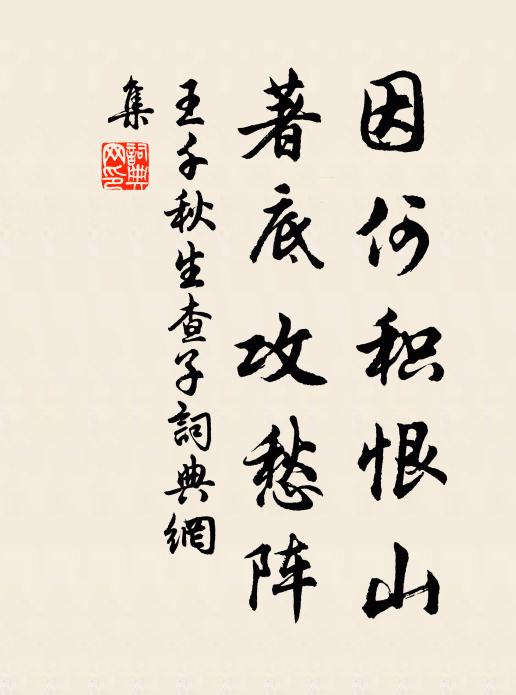 因何积恨山
著底攻愁阵
王千秋生查子詞典網
集
詞典
网印